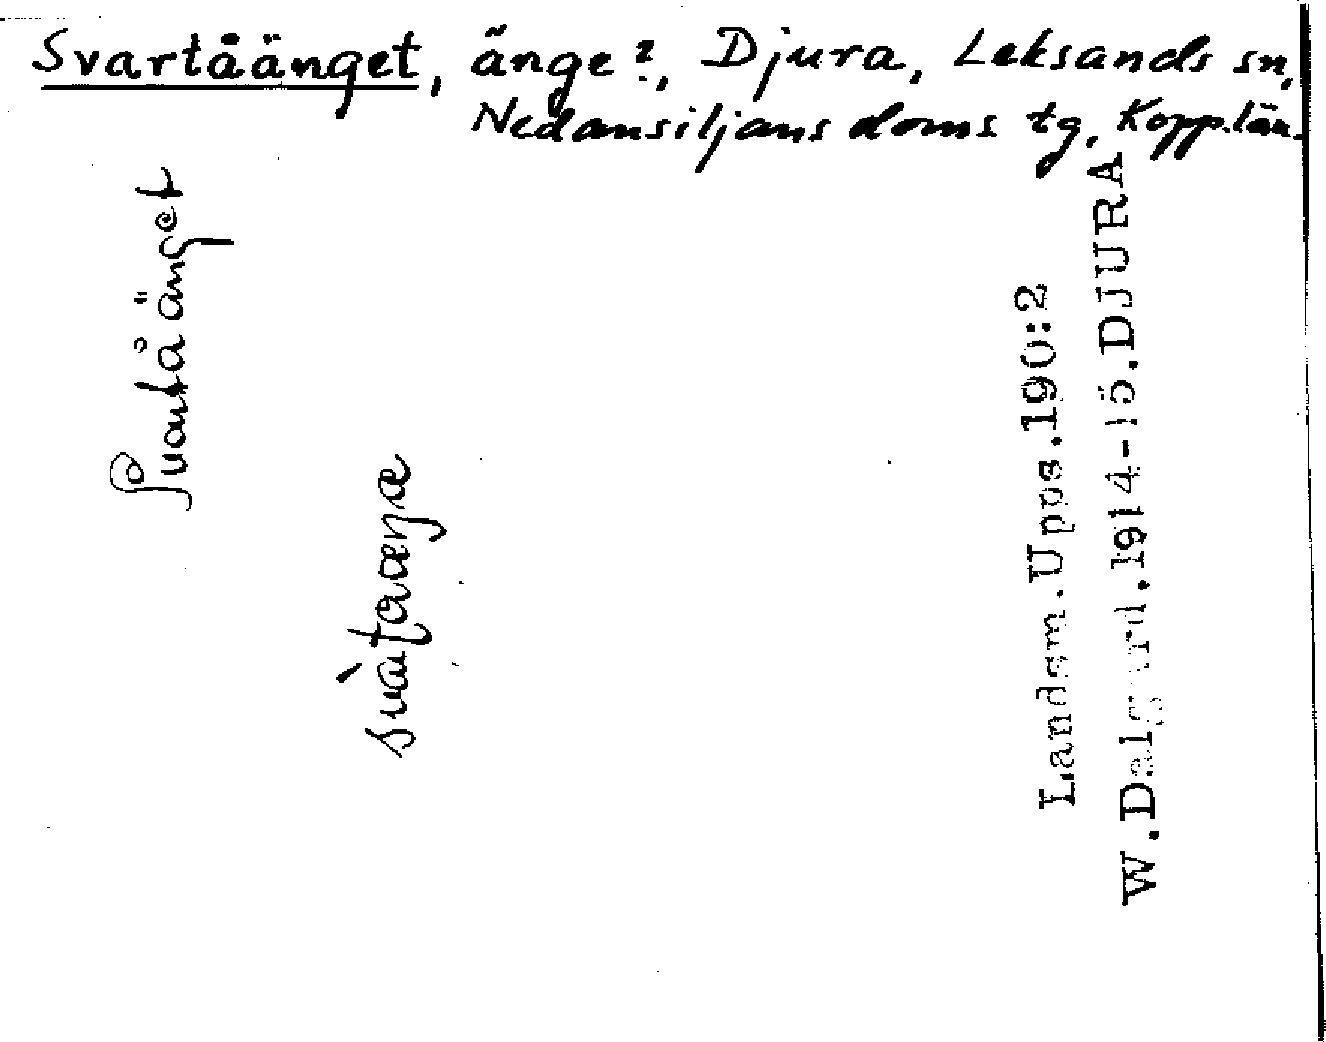 Svartåänget, änge?, Djura, Leksands sn,
Nedansiljans doms tg, Kopp.län.
Svartåänget
svàtaæŋæ
Landsm.Upps.190:2
W.Dalgard.1914-15.DJURA